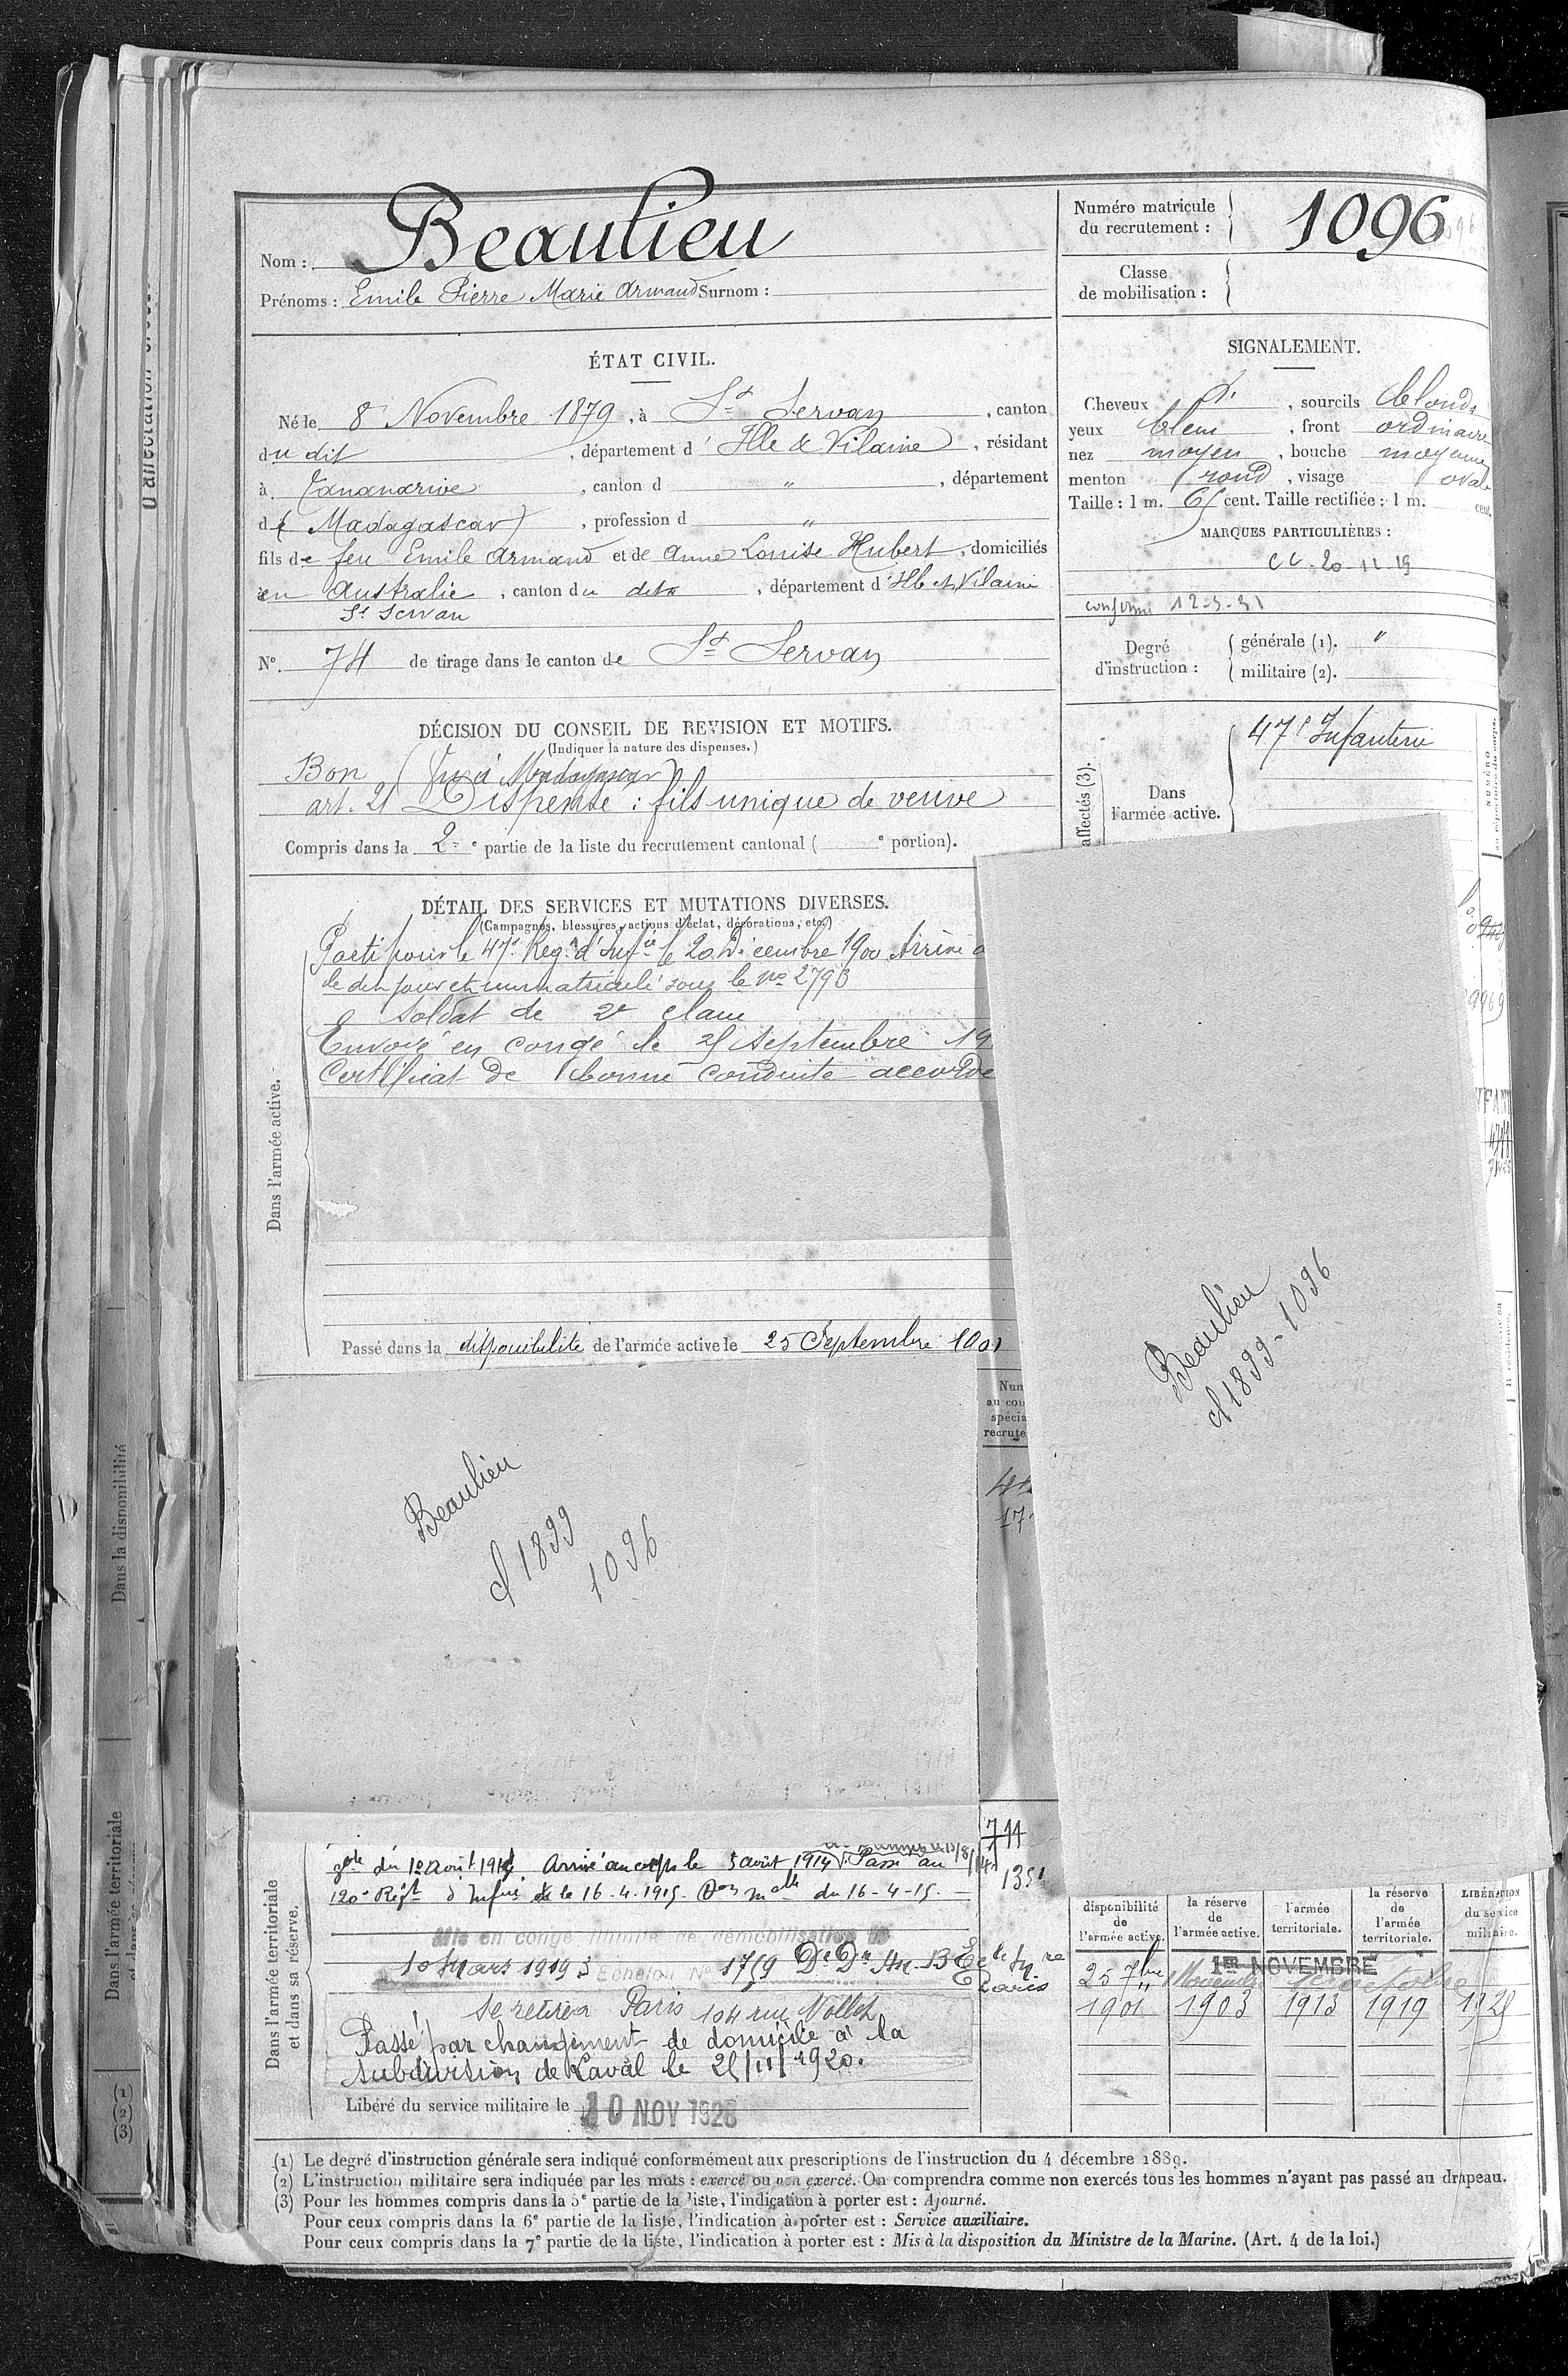 Nom : Beaulieu
Prénoms : Emile Pierre Marie Armand Surnom :
Numéro matricule
du recrutement : 1096
Classe
de mobilisation :
ÉTAT CIVIL.
Né le 8 Novembre 1879, à St Servan, canton
du dit, département d'Ille & Vilaine, résidant
à Tananarive, canton d ", département
d (Madagascar), profession d "
fils de feu Emile Armand et de Anne Louise Hubert, domiciliés
en Australie, canton du dit, département d'Ille et Vilaine
St Servan
N° 74 de tirage dans le canton de St Servan
SIGNALEMENT.
Cheveux d°, sourcils blonds
yeux bleu, front ordinaire
nez moyen, bouche moyenne
menton rond, visage ovale
Taille : 1 m. 65 cent. Taille rectifiée : 1 m. cent.
MARQUES PARTICULIÈRES :
CC. 20-12-19
conforme 12-5-31
Degré
d'instruction :
générale (1). "
militaire (2).
DÉCISION DU CONSEIL DE REVISION ET MOTIFS.
(Indiquer la nature des dispenses.)
Bon (Vu à Madagascar)
art. 21 Dispensé : fils unique de veuve
Compris dans la 2e partie de la liste du recrutement cantonal ( e portion).
affectés (3).
Dans
l'armée active.
47e Infanterie
DÉTAIL DES SERVICES ET MUTATIONS DIVERSES.
(Campagnes, blessures, actions d'éclat, décorations, etc.)
Dans l'armée active.
Parti pour le 47e Régt d'Infie le 20 Décembre 1900 Arrivé
le dit jour et immatriculé sous le no 2793
Soldat de 2e classe
Envoyé en congé le 25 Septembre 19
Certificat de bonne conduite accordé
Passé dans la disponibilité de l'armée active le 25 Septembre 1901
Beaulieu
cl 1899
1096
Beaulieu
cl 1899-1096
Dans la disponibilité
Dans l'armée territoriale
Dans l'armée territoriale
et dans sa réserve.
711
gale du 1er août 1914 Arrivé au corps le 5 août 1914 Passé au
120e Régt d'Infie le 16.4.1915. Don mlle du 16-4-15.
1351
Mis en congé illimité de démobilisation le
10 Mars 1919 3 Echelon N° 1759
Paris
se retire à Paris 104 rue Nollet
Passé par changement de domicile à la
subdivision de Laval le 25/11/1920.
Libéré du service militaire le 10 NOV 1928
disponibilité
de
l'armée active.
la réserve
de
l'armée active.
l'armée
territoriale.
la réserve
de
l'armée
territoriale.
LIBÉRATION
du service
militaire.
1ER NOVEMBRE
25 7bre 1 Novembre 1er octobre
1901 1903 1913 1919
(1) Le degré d'instruction générale sera indiqué conformément aux prescriptions de l'instruction du 4 décembre 1889.
(2) L'instruction militaire sera indiquée par les mots : exercé ou non exercé. On comprendra comme non exercés tous les hommes n'ayant pas passé au drapeau.
(3) Pour les hommes compris dans la 5e partie de la liste, l'indication à porter est : Ajourné.
Pour ceux compris dans la 6e partie de la liste, l'indication à porter est : Service auxiliaire.
Pour ceux compris dans la 7e partie de la liste, l'indication à porter est : Mis à la disposition du Ministre de la Marine. (Art. 4 de la loi.)